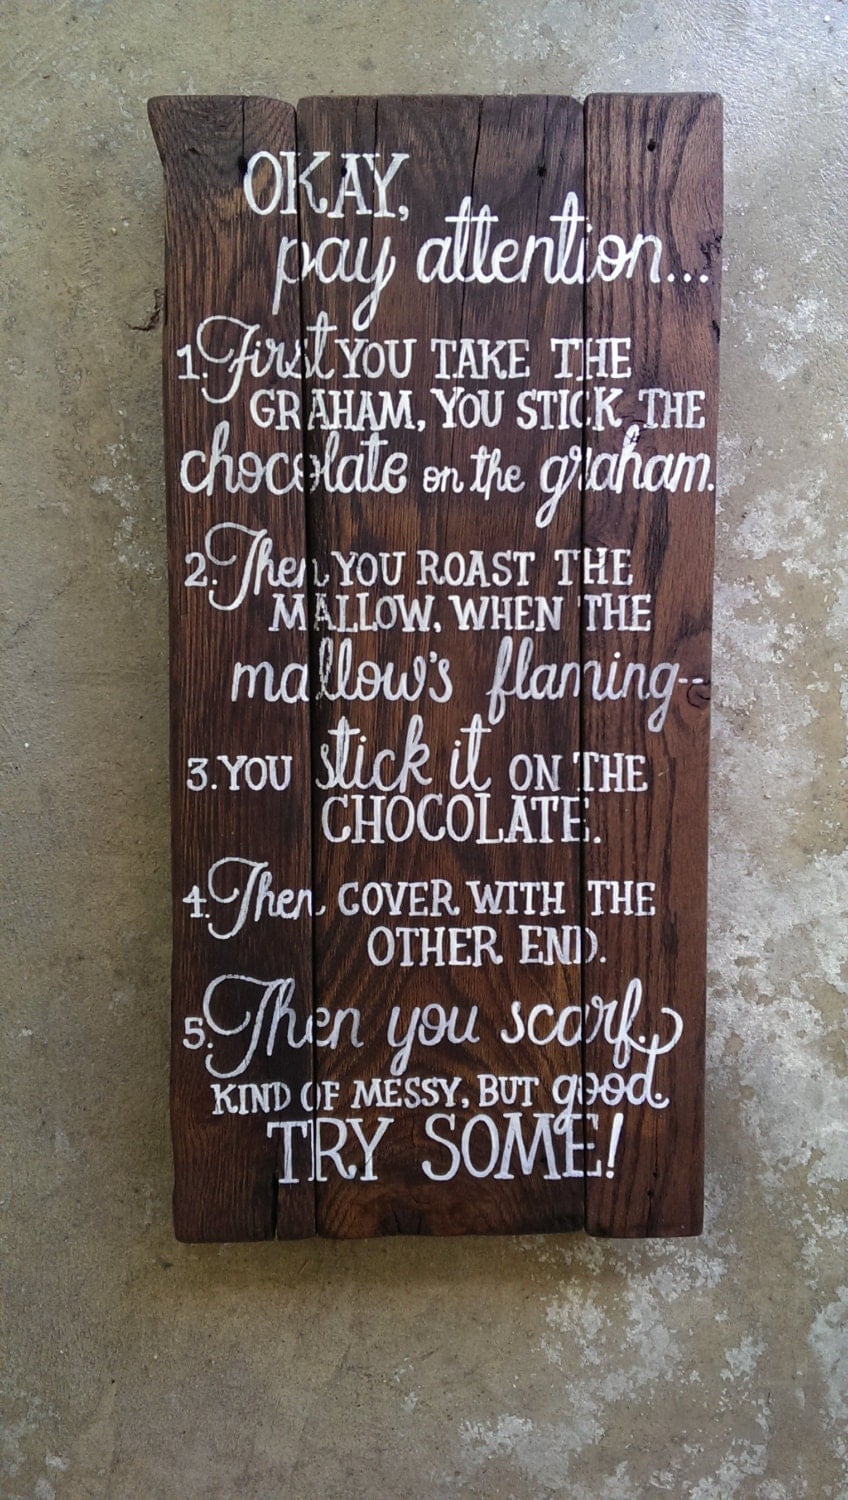 OKAY,
pay attention...
1. First YOU TAKE THE
GRAHAM, YOU STICK THE
chocolate on the graham.
2. Then YOU ROAST THE
MALLOW, WHEN THE
mallow's flaming--
3. YOU stick it ON THE
CHOCOLATE.
4. Then COVER WITH THE
OTHER END.
5. Then you scarf.
KIND OF MESSY, BUT good.
TRY SOME!